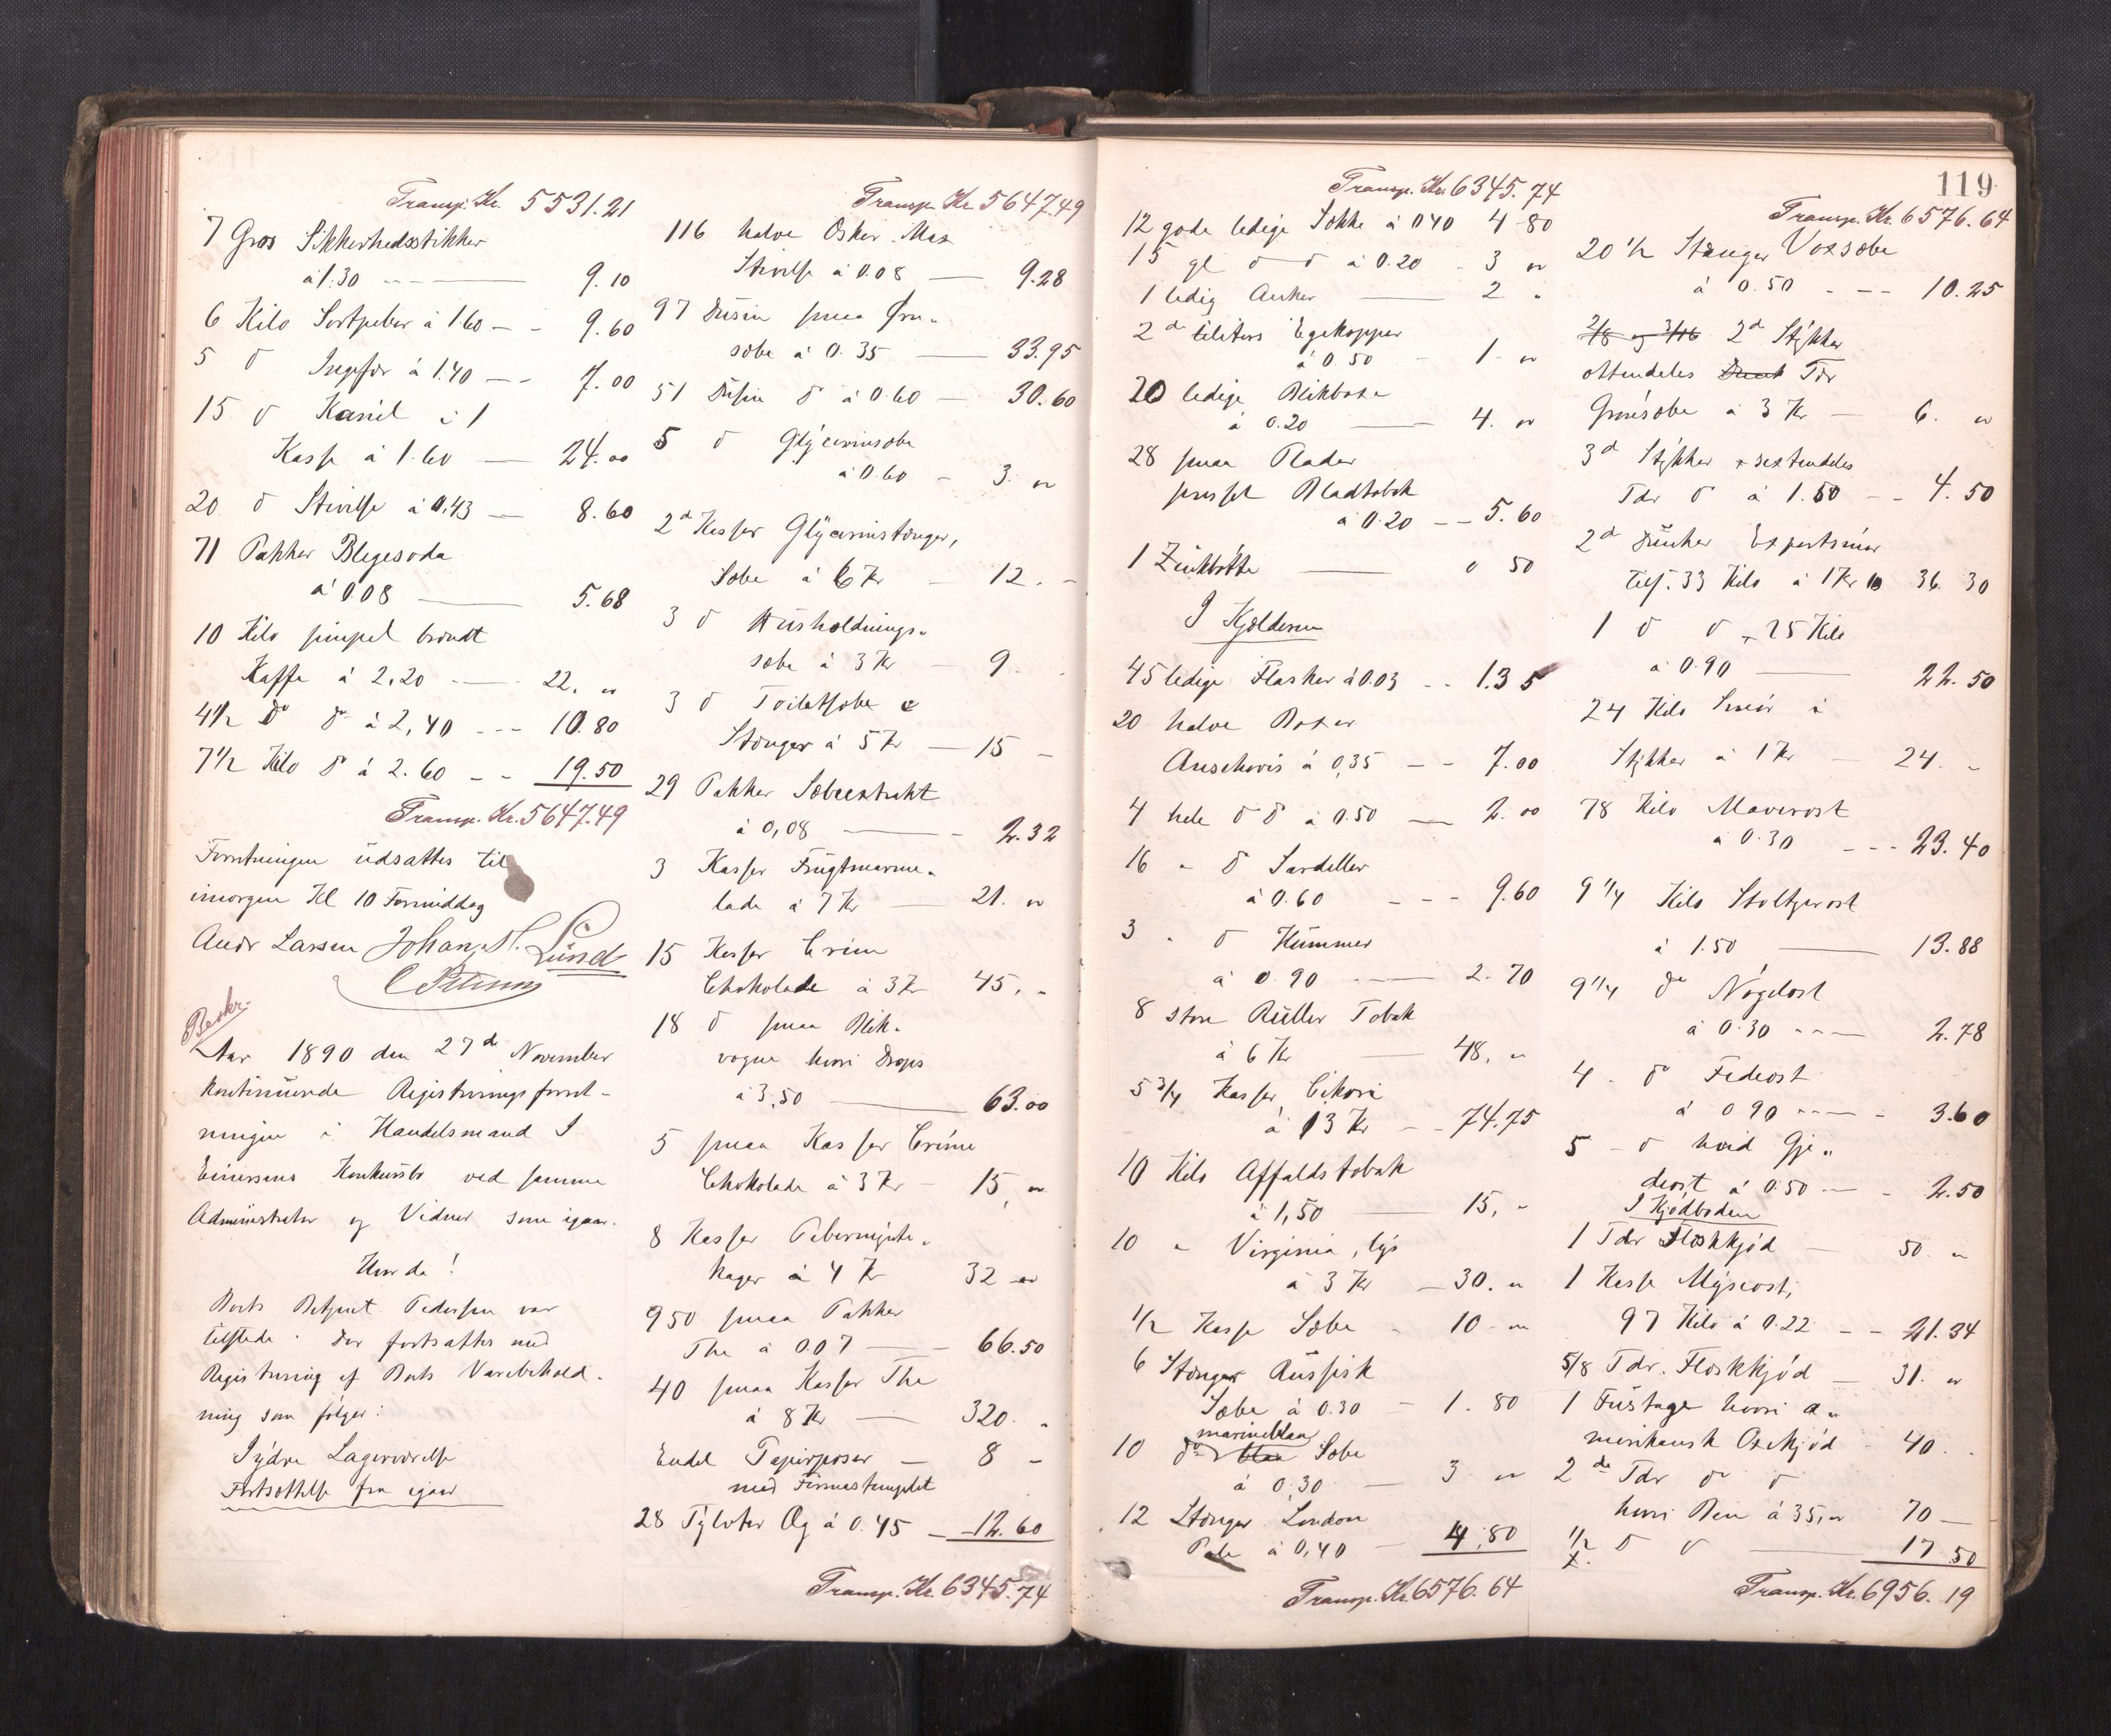 Transp. Kr. 5531.21
7 Gros Sikkerhedsstikker
à 1.30 9.10
6 Kilo Sortpeber à 1.60 9.60
5 d Ingefær à 1.40 7.00
15 d Kanel i 1
Kasse à 1.60 24.00
20 d Stivelse à 0,43 8.60
71 Pakker Blegesoda
à 0.08 5.68
10 Kilo simpel brændt
Kaffe à 2,20 22. "
4 1/2 do d à 2,40 10.80
7 1/2 Kilo d à 2.60 19.50
Transp. Kr. 5647.49
Forretningen udsattes til
imorgen Kl 10 Formiddag
Andr Larsen Johan Lund
Beskr.
Aar 1890 den 27de November
kontinuerede Registreringsforret-
ningen i Handelsmand I
Einersens Konkursbo ved samme
Administrator og Vidner som igaar.
Hvorda!
Boets Betjent Pedersen var
tilstede. Der fortsattes med
Registrering af Boets Varebehold-
ning som følger:
I ydre Lagerværelse
Fortsættelse fra igaar
Transp. Kr. 5647.49
116 halve Æsker Mas
Stivelse à 0.08 9.28
97 Dusin smaa Grøn-
sæbe à 0.35 33.95
51 Dusin d à 0.60 30.60
5 d Glycerinsæbe
à 0.60 3. "
2d Kasser Glycerinstænger,
Sæbe à 6 Kr 12. -
3 d Husholdnings-
sæbe à 3 Kr 9.
3 d Toiletsæbe
Stænger à 5 Kr 15 -
29 Pakker Sæbeextrakt
à 0,08 2.32
3 Kasser Frugtmarme-
lade à 7 Kr 21. "
15 Kasser Creme
Chokolade à 3 Kr 45, -
18 d smaa Blik-
vogne hvori Drops
à 3,50 63.00
5 smaa Kasser Créme
Chokolade à 3 Kr 15, "
8 Kasser Pebermynte-
kager à 4 Kr 32 "
950 smaa Pakker
The à 0.07 66.50
40 smaa Kasser The
à 8 Kr 320. "
Endel Papirposer 8 -
med Firmastemplet
28 Tylvter Æg à 0.45 12.60
Transp. Kr. 6345.74
119
Transp. Kr. 6345.74
12 gode ledige Sække à 0.40 4 80
15 gl d d à 0.20 3 "
1 ledig Anker 2 "
2d liters Egekopper
à 0.50 1 "
20 ledige Blikboxe
à 0.20 4. "
28 smaa Plader
presset Bladtobak
à 0.20 5.60
1 Zinkbøtte 0 50
I Kjælderen
45 ledige Flasker à 0.03 1.35
20 halve Boxer
Anschovis à 0,35 7.00
4 hele d d à 0.50 2.00
16 " d Sardeller
à 0.60 9.60
3 " d Hummer
à 0.90 2.70
8 store Ruller Tobak
à 6 Kr 48. "
5 3/4 Kasser Cikori
à 13 Kr 74.75
10 Kilo Affaldstobak
à 1,50 15, -
10 " Virginia, lys
à 3 Kr 30. "
1/2 Kasse Sæbe 10 "
6 Stænger Russisk
Sæbe à 0.30 1.80
marineblaa
10 do blaa Sæbe
à 0,30 3 "
12 Stænger London
Pale à 0,40 4,80
Transp. Kr. 6576.64
Transp. Kr. 6576.64
20 1/2 Stænger Voxsæbe
à 0.50 10.25
2/8 og 3/16 2d Stykker
ottendeles Tdr
Grønsæbe à 3 Kr 6. "
3d Stykker sextendeles
Tdr d à 1.50 4.50
2d Dunker Exportsmør
tils. 33 Kilo à 1 Kr 10 36. 30
1 d d 25 Kilo
à 0.90 22.50
24 Kilo Smør i
Stykker à 1 Kr 24. -
78 Kilo Maverost
à 0.30 23.40
9 1/4 Kilo Stoltzerost
à 1.50 13.88
9 1/4 do Nøgelost
à 0.30 2.78
4 - do Fedeost
à 0 90 3.60
5 - d hvid Gje-
deost à 0.50 2.50
I Kjødboden
1 Tdr Flæskkjød 50. "
1 Kasse Myseost,
97 Kilo à 0.22 21.34
5/8 Tdr. Flæskkjød 31. "
1 Fustage hvori a-
merikansk Oxekjød 40. -
2de Tdr d d
hvori Ben à 35," 70 -
1/2 d d 17 50
Transp. Kr. 6956.19